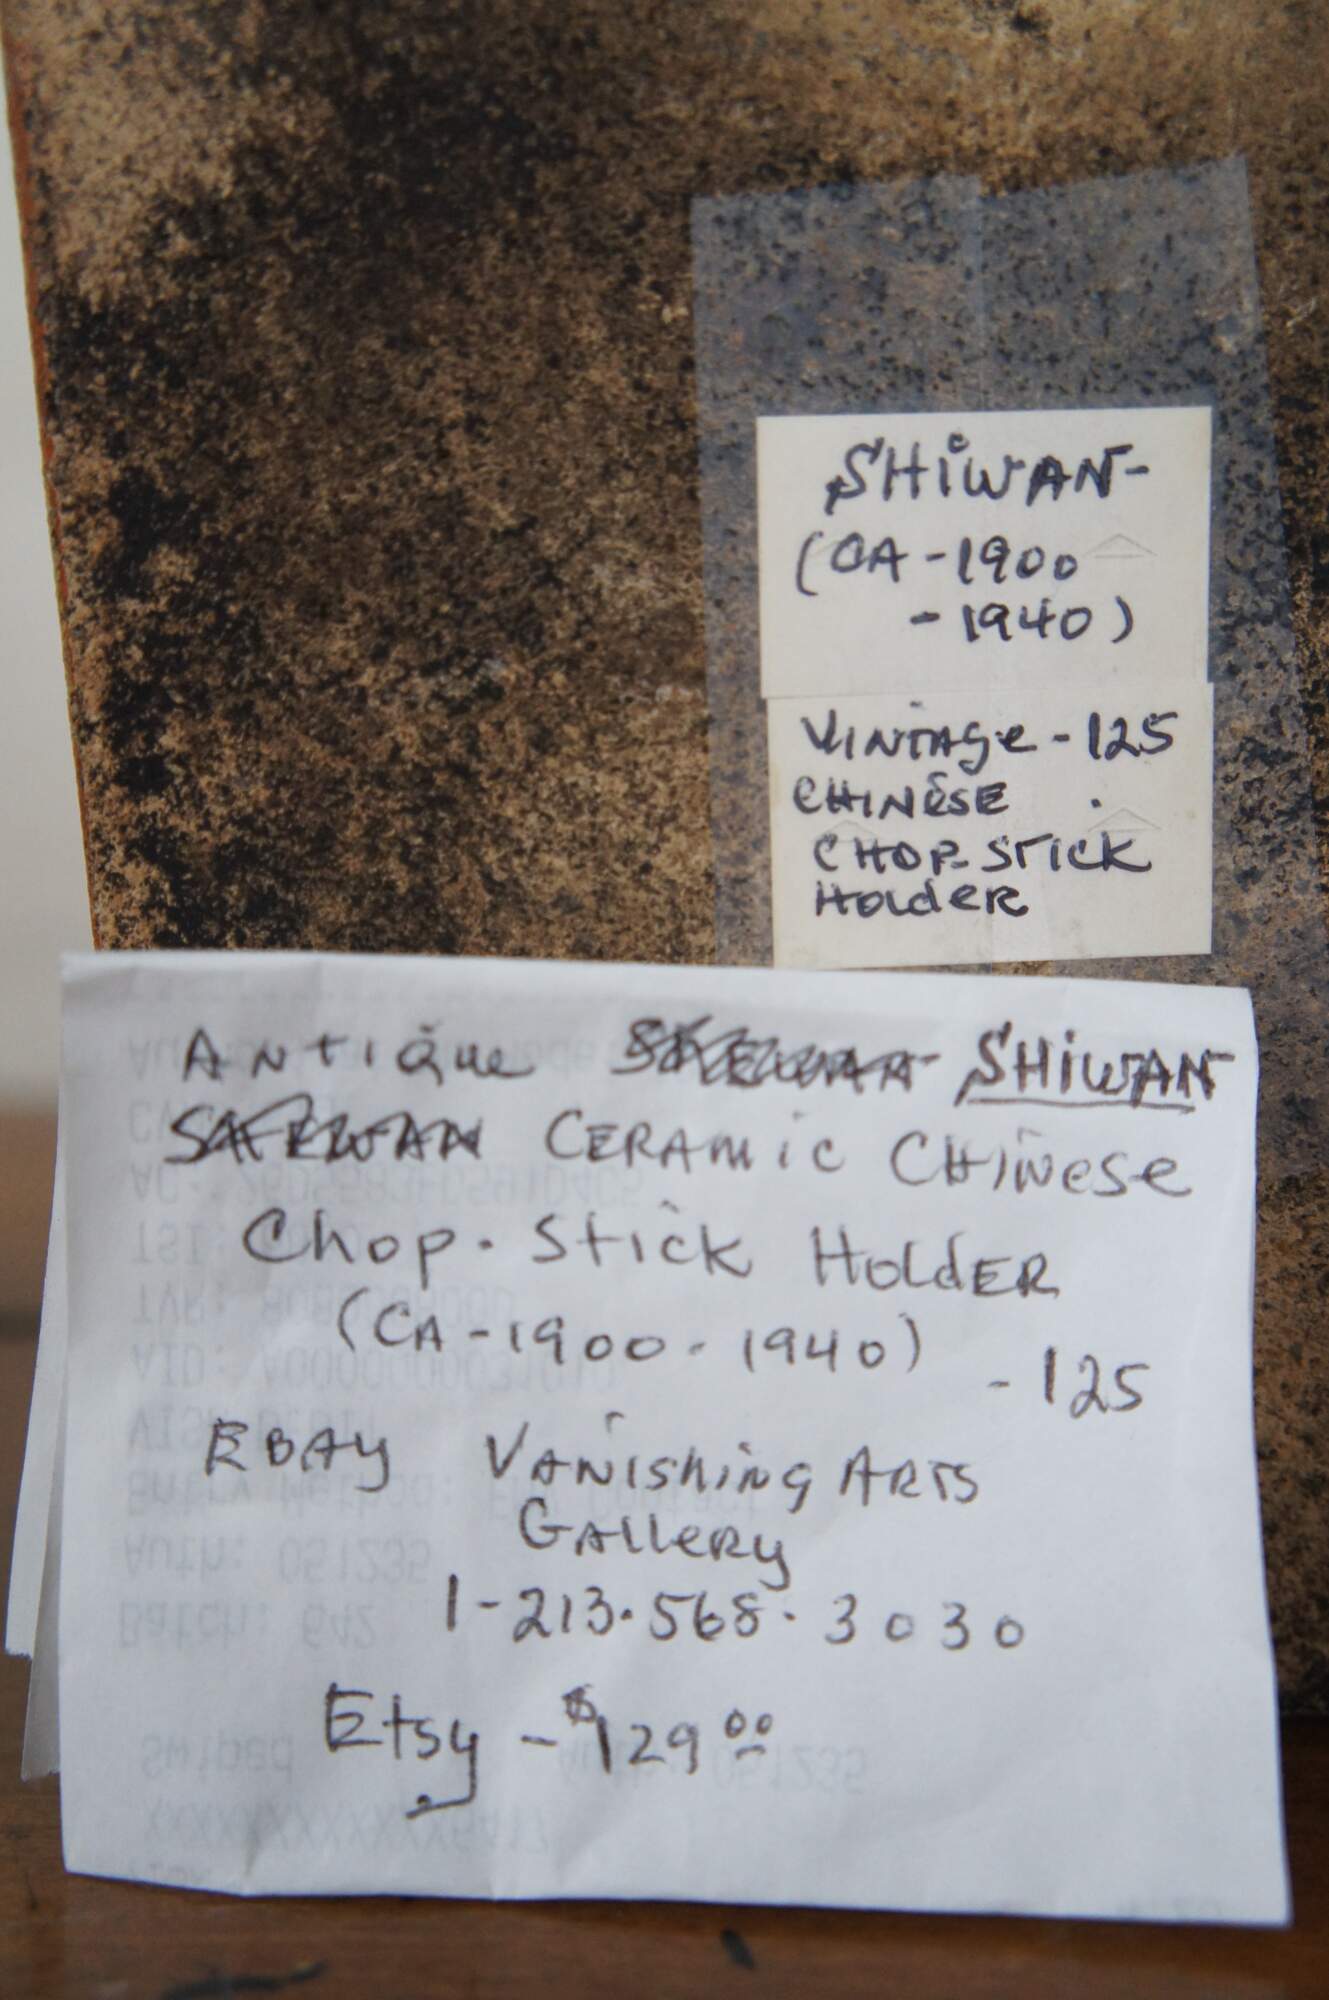 SHiWAN-
(CA - 1900
- 1940)
VINTAGE - 125
CHINESE
CHOP-STICK
HOLDER
ANTIQUE SHiWAN
CERAMiC CHiNese
Chop-Stick HOLDER
(CA - 1900 - 1940)
- 125
EBAY VANiSHiNG ARTS
GALLERY
1-213.568.3030
Etsy - $129 00
Auth: 051235
Batch: 642